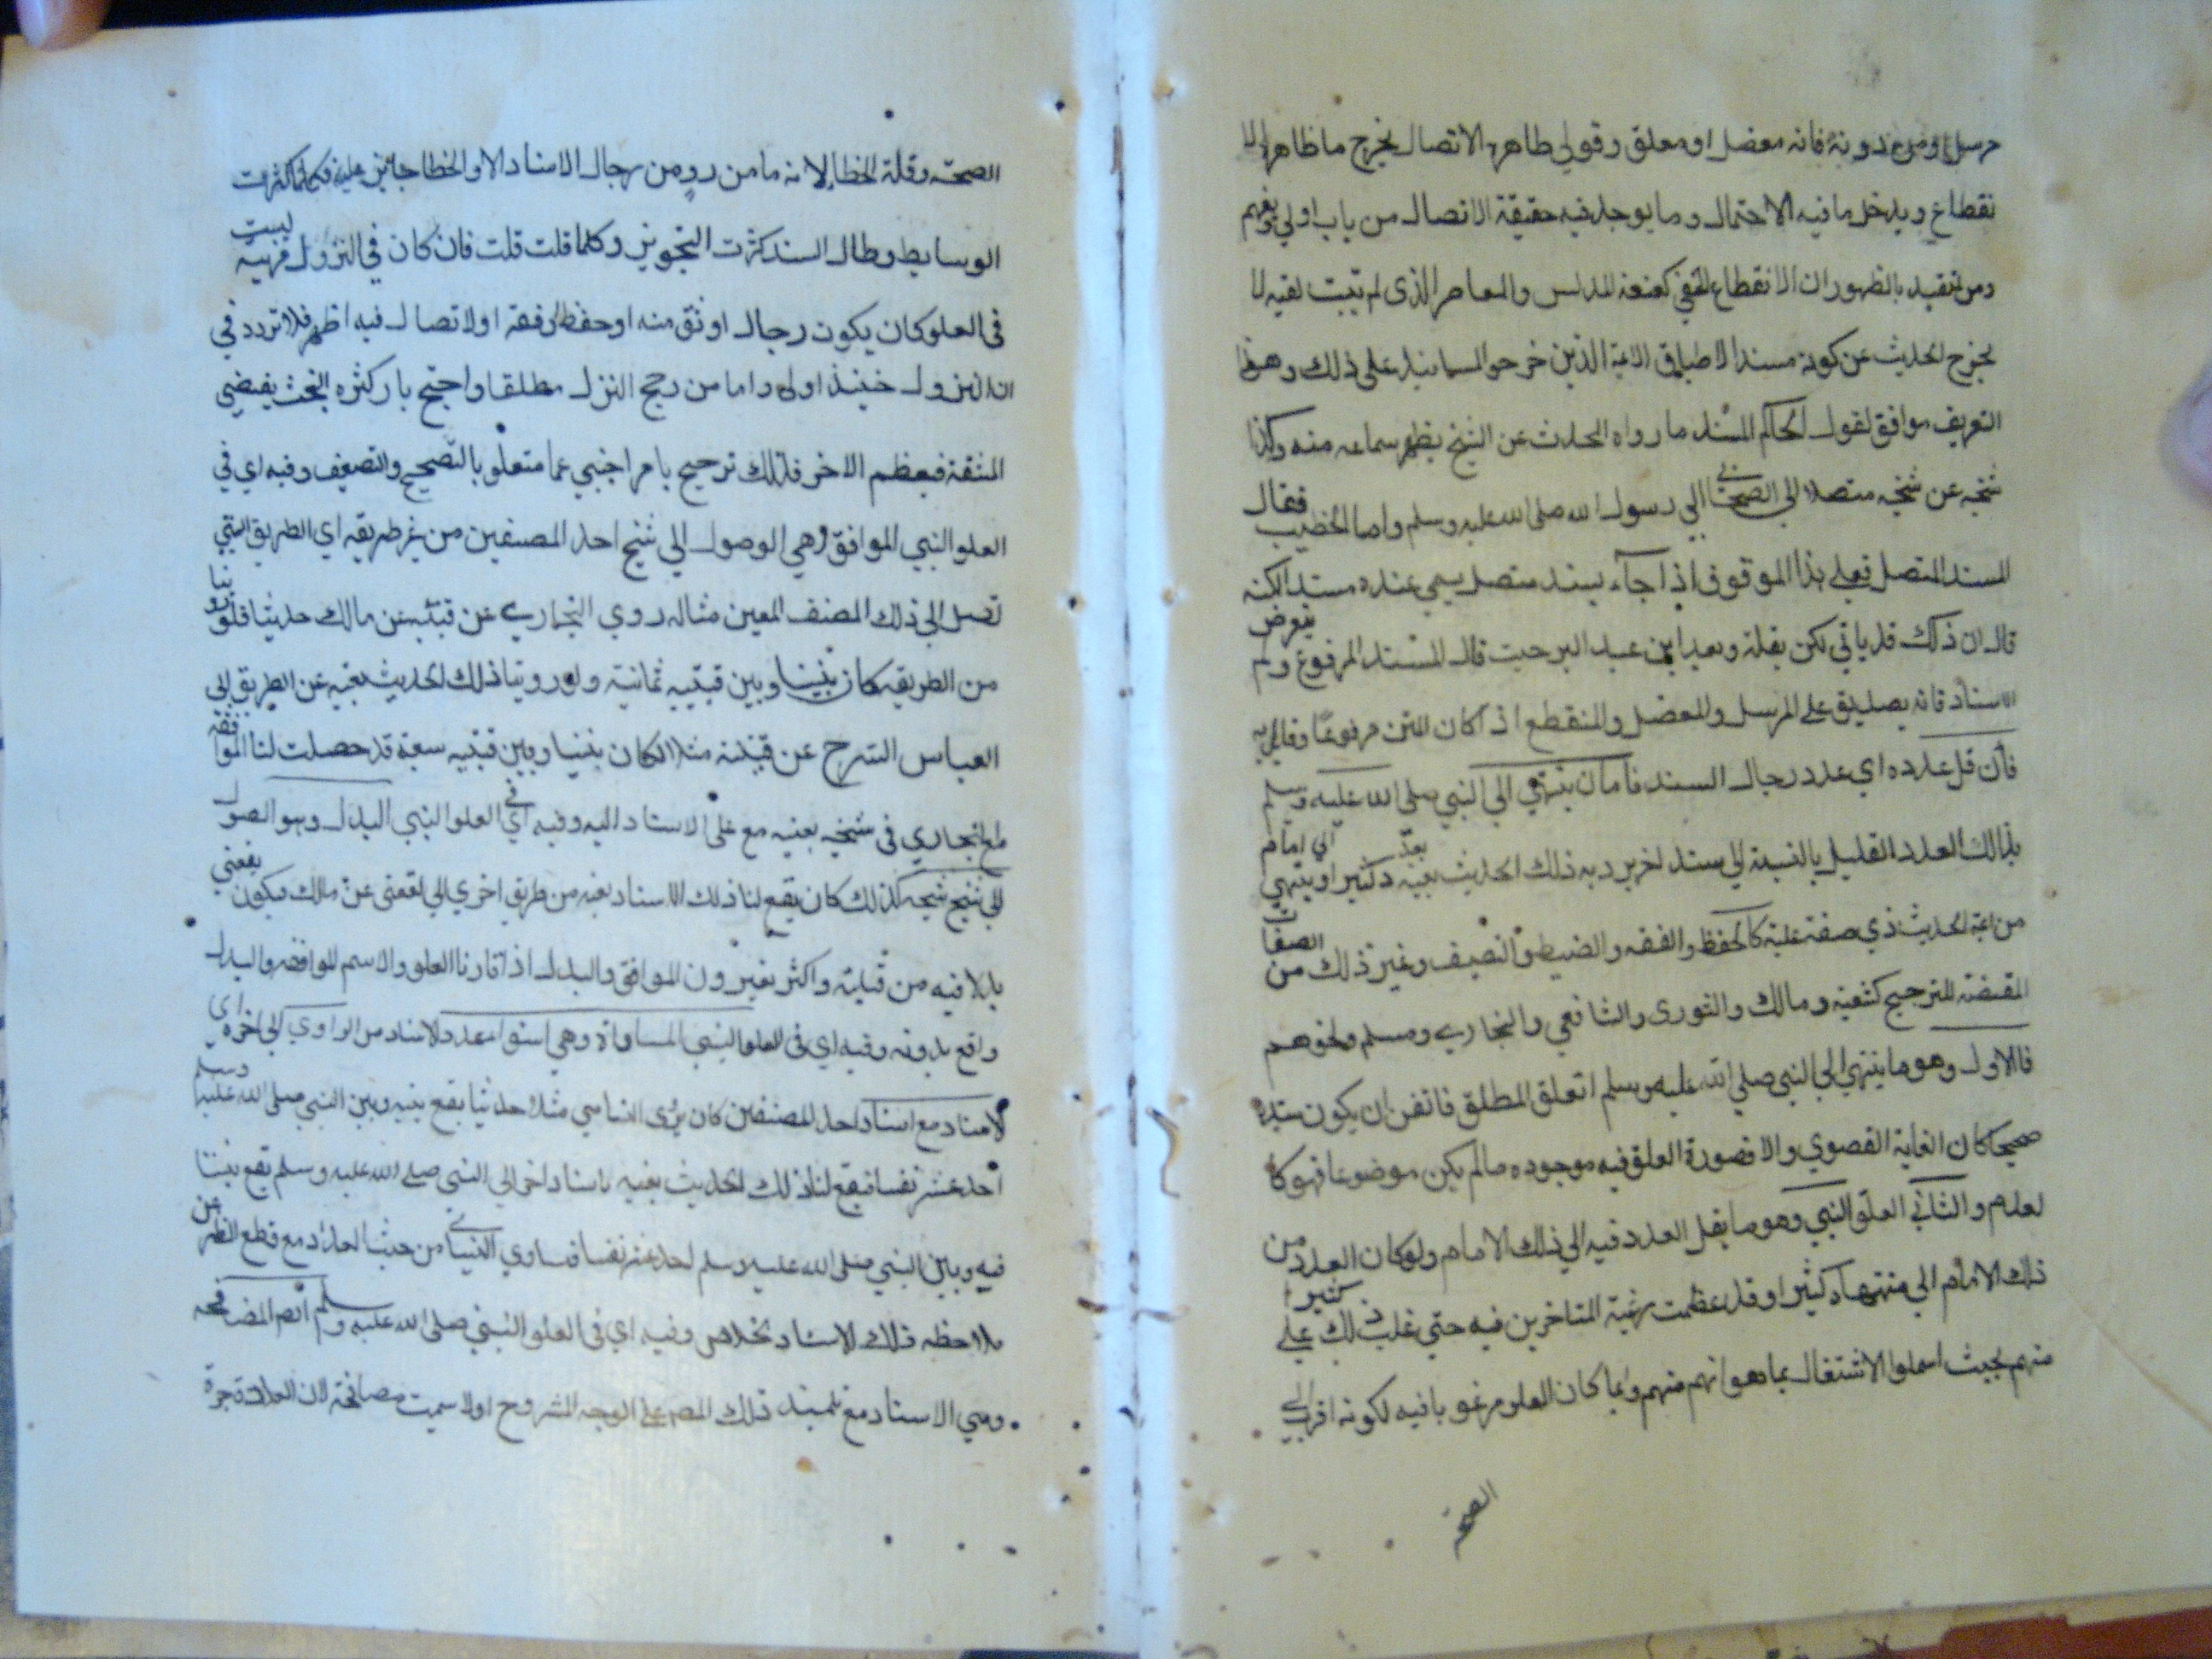 مرسل او من دونه فانه معضل او معلق وقولي ظاهره الاتصال يخرج ما ظاهره الا
نقطاع ويدخل ما فيه الاحتمال وما يوجد فيه حقيقة الاتصال من باب اولي يفهم
ومن تقييد بالظهوران الانقطاع الخفي كعنعنة المدلس والمعاصر الذى لم يثبت لقيه لا
يخرج الحديث عن كونه مسندا لاطباق الائمة الذين خرجوا المسانيد على ذلك وهذا
التعريف موافق لقول الحاكم المسند ما رواه المحدث عن الشيخ يظهر سماعه منه وكذا
شيخه عن شيخه متصلا الي الصحابي الي رسول الله صلى الله عليه وسلم واما الخطيب فقال
المسند المتصل فعلي هذا الموقوف اذا جآء بسند متصل يسمي عنده مسندا لكنه
قال ان ذلك قد ياتي لكن بقلة وبعد ابن عبد البر حيث قال المسند المرفوع ولم يتعرض
الاسناد فانه يصدق على المرسل والمعضل والمنقطع اذا كان المتن مرفوعًا وقائل به
فان قل عدده اي عدد رجال السند فاما ان ينتهي الي النبي صلى الله عليه وسلم
بذالك العدد القليل بالنسبة الي سند اخر يرد به ذلك الحديث بعينه بعدد كثير او ينتهي الي امام
من ائمة الحديث ذي صفة علية كالحفظ والفقه والضبط والتصنيف وغير ذلك من الصفات
المقتضة للترجيح كشعبة ومالك والثورى والشافعي والبخاري ومسلم ونحوهم
فالاول وهو ما ينتهي الي النبي صلي الله عليه وسلم العلو المطلق فاتفق ان يكون سنده
صحيحا كان الغاية القصوي والا فصورة العلو فيه موجوده ما لم يكن موضوعا فهو كا
لعدم والثاني العلو النسبي وهو ما يقل العدد فيه الي ذلك الامام ولو كان العدد من
ذلك الامام الي منتهاه كثيرا وقد عظمت رغبة المتاخرين فيه حتي غلب ذلك علي كثير
منهم بحيث اهملوا الاشتغال بما هو اهم منهم وانما كان العلو مرغوبا فيه لكونه اقرب الي
الصحة
الصحة وقلة الخطا لانه ما من رو من رجال الاسناد الا والخطا جايز عليه فكلما كثرت
الوسايط وطال السند كثرت التجويز وكلما قلت قلت فان كان في النزول مزية ليست
فى العلو كان يكون رجال اوثق منه او حفظ او فقه او الاتصال فيه اظهر فلا تردد في
ان النزول حينئذ اولى واما من رجح النزل مطلقا واحتج بار كثره البحث يقتضي
المشقة فيعظم الاخر فذلك ترجيح بامر اجنبي عما متعلو بالتصحيح والتضعيف وفيه اي في
العلو النسبي الموافقة وهي الوصول الي شيخ احد المصنفين من غير طريقه اي الطريق التي
تصل الى ذلك المصنف المعين مثاله روي البخاري عن قتيبه عن مالك حديثا فلو روينا
من الطريقه كان بيننا وبين قتيبه ثمانية ولو روينا ذلك الحديث بعينه عن الطريق الي
العباس السرج عن قتيبة مثلا لكان بيننا وبين قتيبه سبعة قد حصلت لنا الموافقة
مع البخاري في شيخه بعينه مع على الاسناد اليه وفيه اي في العلو النسبي البدل وهو الوصول
الي شيخ شيخه كذلك كان يقع لنا ذلك الاسناد بعينه من طريق اخري الي القعنبي عن مالك فيكون يقعنبي
بدلا فيه من قتيبة واكثر يعتبرون الموافق والبدل اذا قارنا العلو والاسم الموافقه والبدل
واقع بدونه وفيه اي فى العلو النسبي المساواة وهي استوا عدد الاسناد من الراوي الي اخره اي
الاسناد مع اسناد احد المصنفين كان يروى النساسي مثلا حديثا يقع بينه وبين النبي صلى الله عليه وسلم
احد عشر نفسا فيقع لنا ذلك الحديث بعينه باسناد اخر الي النبي صلي الله عليه وسلم يقع بيننا
فيه وبين النبي صلى الله عليه وسلم احد عشر نفسا فنساوي النساي من حيث العدد مع قطع النظر عن
ملاحظه ذلك الاسناد بخلاص وفيه اي فى العلو النسبي صلى الله عليه وسلم ايضا المصافحه
وهي الاسناد مع تلميذ ذلك المصـ على الوجه المشروح اولا سميت مصافحة لان العادة جرة